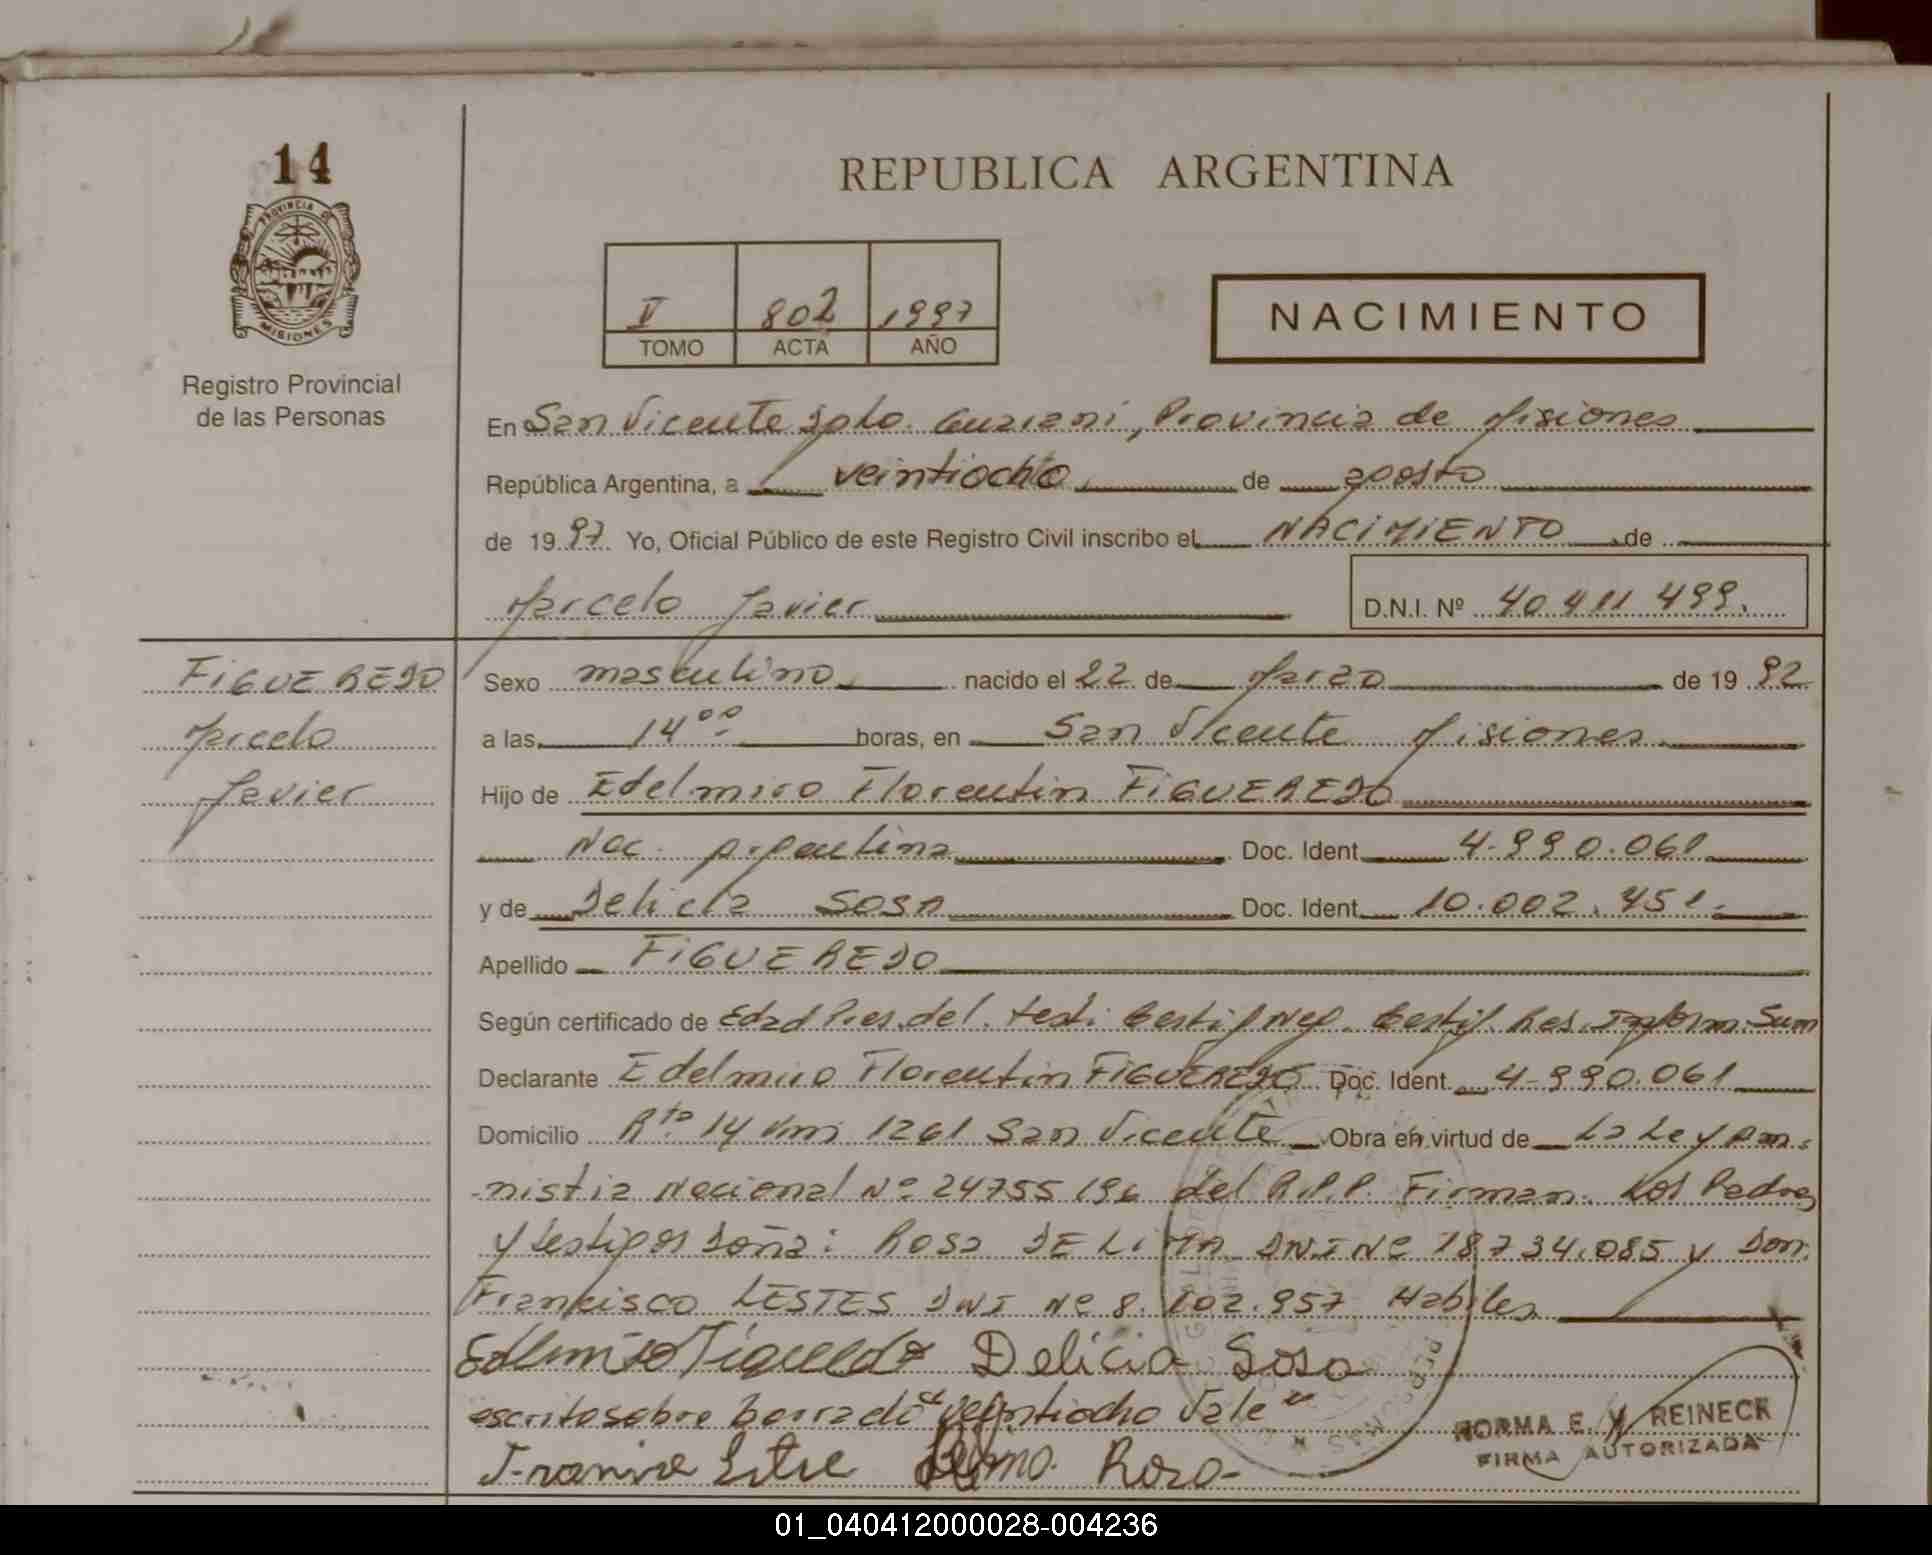 14
PROVINCIA DE
MISIONES
Registro Provincial
de las Personas
REPUBLICA ARGENTINA
V 802 1997
TOMO ACTA AÑO
NACIMIENTO
En San Vicente Dpto. Guaraní, Provincia de Misiones
República Argentina, a veintiocho de agosto
de 1997. Yo, Oficial Público de este Registro Civil inscribo el NACIMIENTO de
Marcelo Javier
D.N.I. Nº 40 411 499.
FIGUEREDO
Marcelo
Javier
Sexo masculino nacido el 22 de Marzo de 1992
a las 14⁰⁰ horas, en San Vicente Misiones
Hijo de Edelmiro Florentin FIGUEREDO
Nac. Argentina Doc. Ident 4.990.061
y de Delicia SOSA Doc. Ident. 10.002.451.
Apellido FIGUEREDO
Según certificado de Edad Pres. del. testi. Certif Neg. Certif. Res. Inform. Sum
Declarante Edelmiro Florentin FIGUEREDO Doc. Ident. 4.990.061
Domicilio Rta. 14 Km 1261 San Vicente Obra en virtud de La Ley Am-
nistia Nacional Nº 24755/96 del R.P.P. Firman. Los Padres
y testigos Doña: ROSA DE LIMA DNI Nº 18.734.085 y Don.
Francisco LESTES DNI Nº 8.102.957 Habiles
Edelmiro Figueredo Delicia Sosa
escrito sobre borrado "veintiocho Vale"
Rosa
NORMA E. REINECK
FIRMA AUTORIZADA
01_040412000028-004236